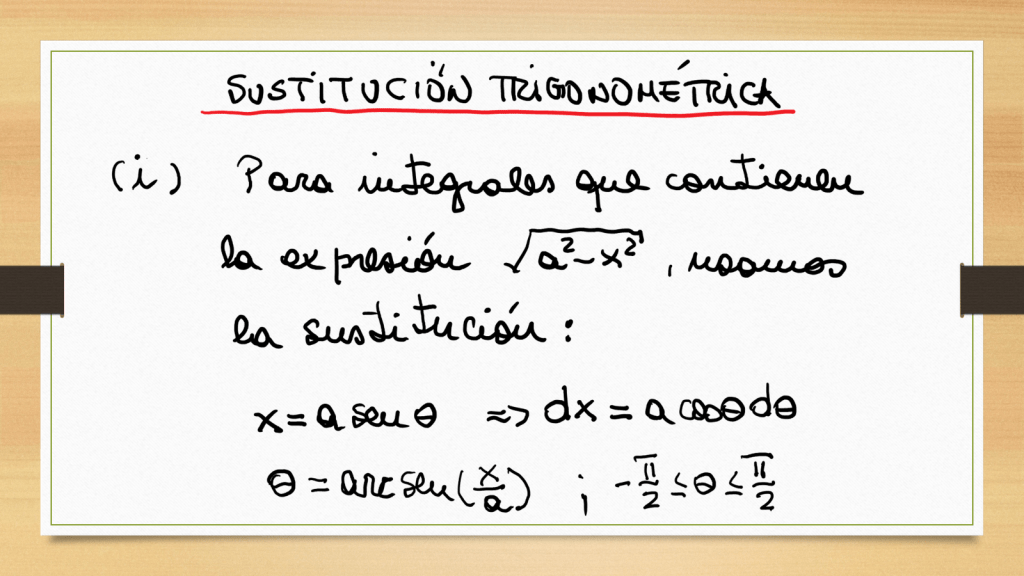 SUSTITUCIÓN TRIGONOMÉTRICA
(i) Para integrales que contienen
la expresión √(a²-x²), usamos
la sustitución:
x = a sen θ => dx = a cosθ dθ
θ = arc sen(x/a) ; -π/2 ≤ θ ≤ π/2